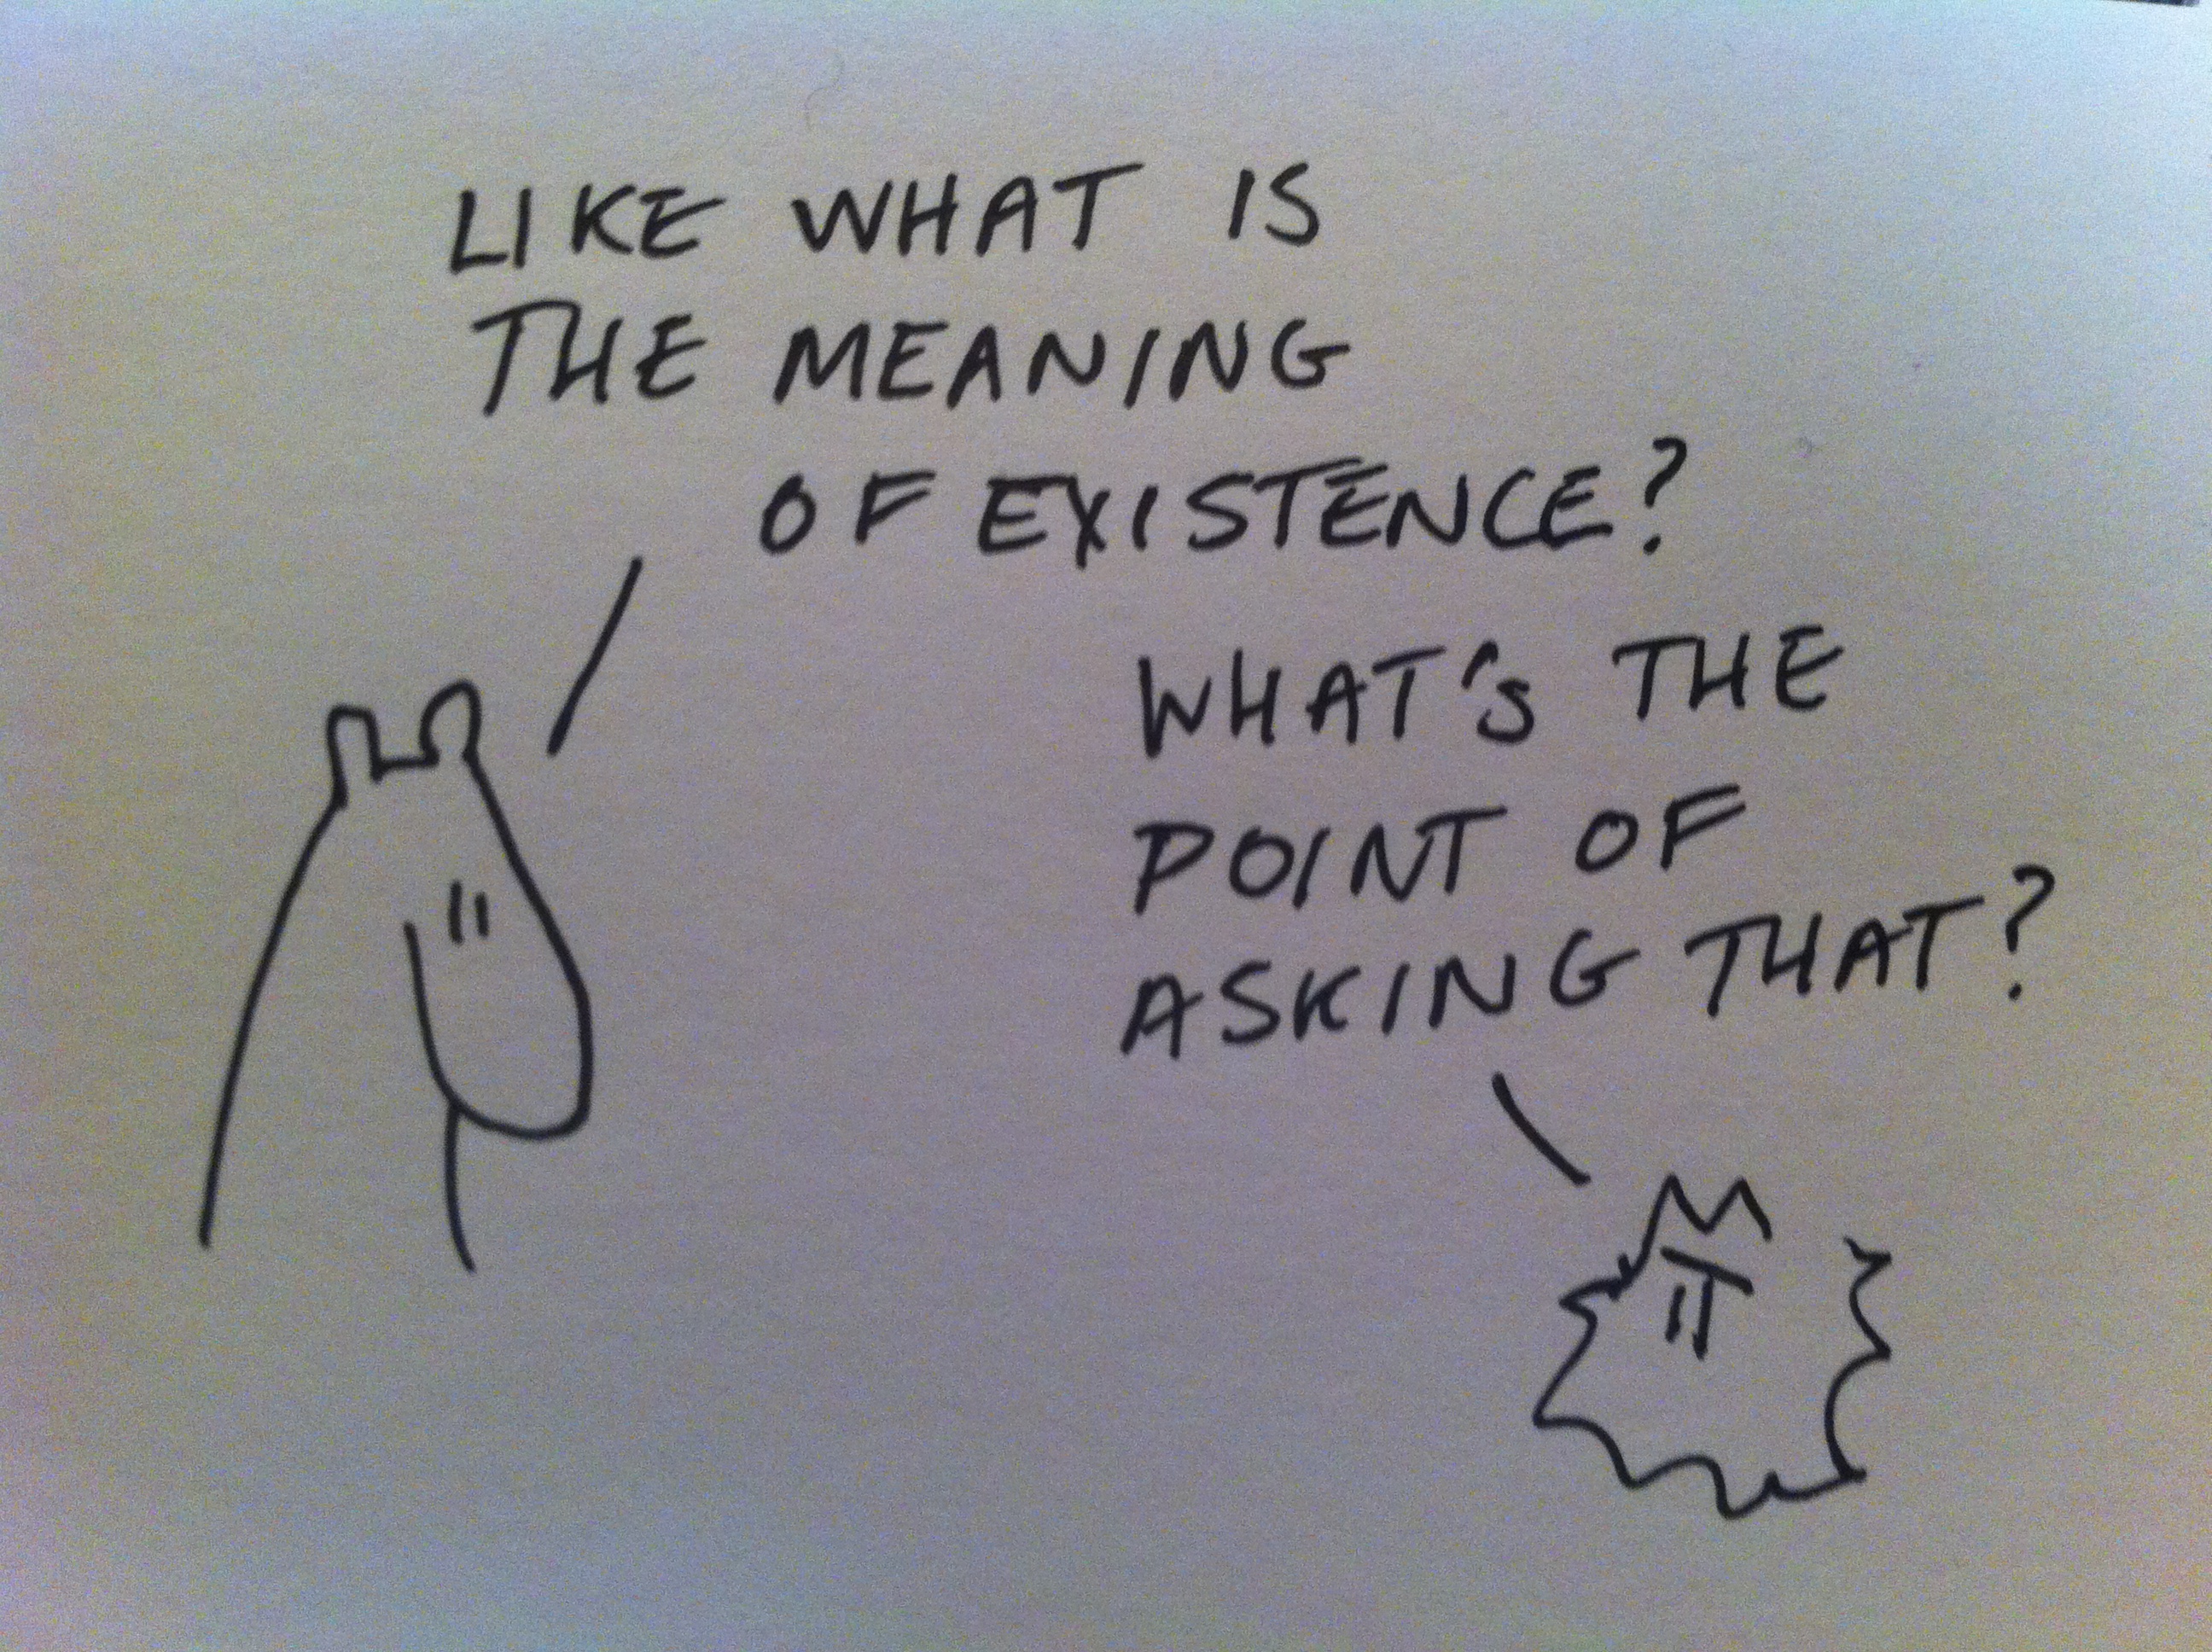 LIKE WHAT IS
THE MEANING
OF EXISTENCE?
WHAT'S THE
POINT OF
ASKING THAT?